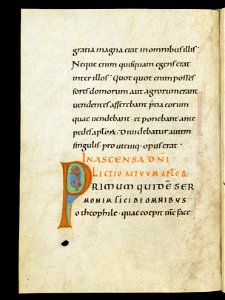 gratia magna erat in omnibus illis.
Neque enim quisquam egens erat
inter illos. Quot quot enim posses
sores domorum aut agrorum erant
uendentes afferebant pretia eorum
quae uendebant. et ponebant ante
pedes aplorum. Diuidebatur autem
singulis. prout cuiq. opus erat.
IN ASCENSA DNI
LECTIO ACTUUM APLOR
PRIMUM QUIDE SER
MONEM FECI DE OMNIBUS
o theophile. quae coepit ihc facere